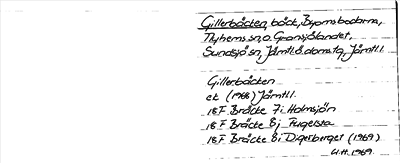 Gillerbäcken, bäck, Bjornsbodarna,
Nyhems sn, o. Gransjölandet,
Sundsjö sn, Jämtl. ö. doms.tg, Jämtl.l.
Gillerbäcken
ek (1968) Jämtl.l.
18 F Bräcke 7i Holmsjön
18 F Bräcke 8j Fugelsta
18 F Bräcke 8i Digerberget (1969)
U.H. 1969.